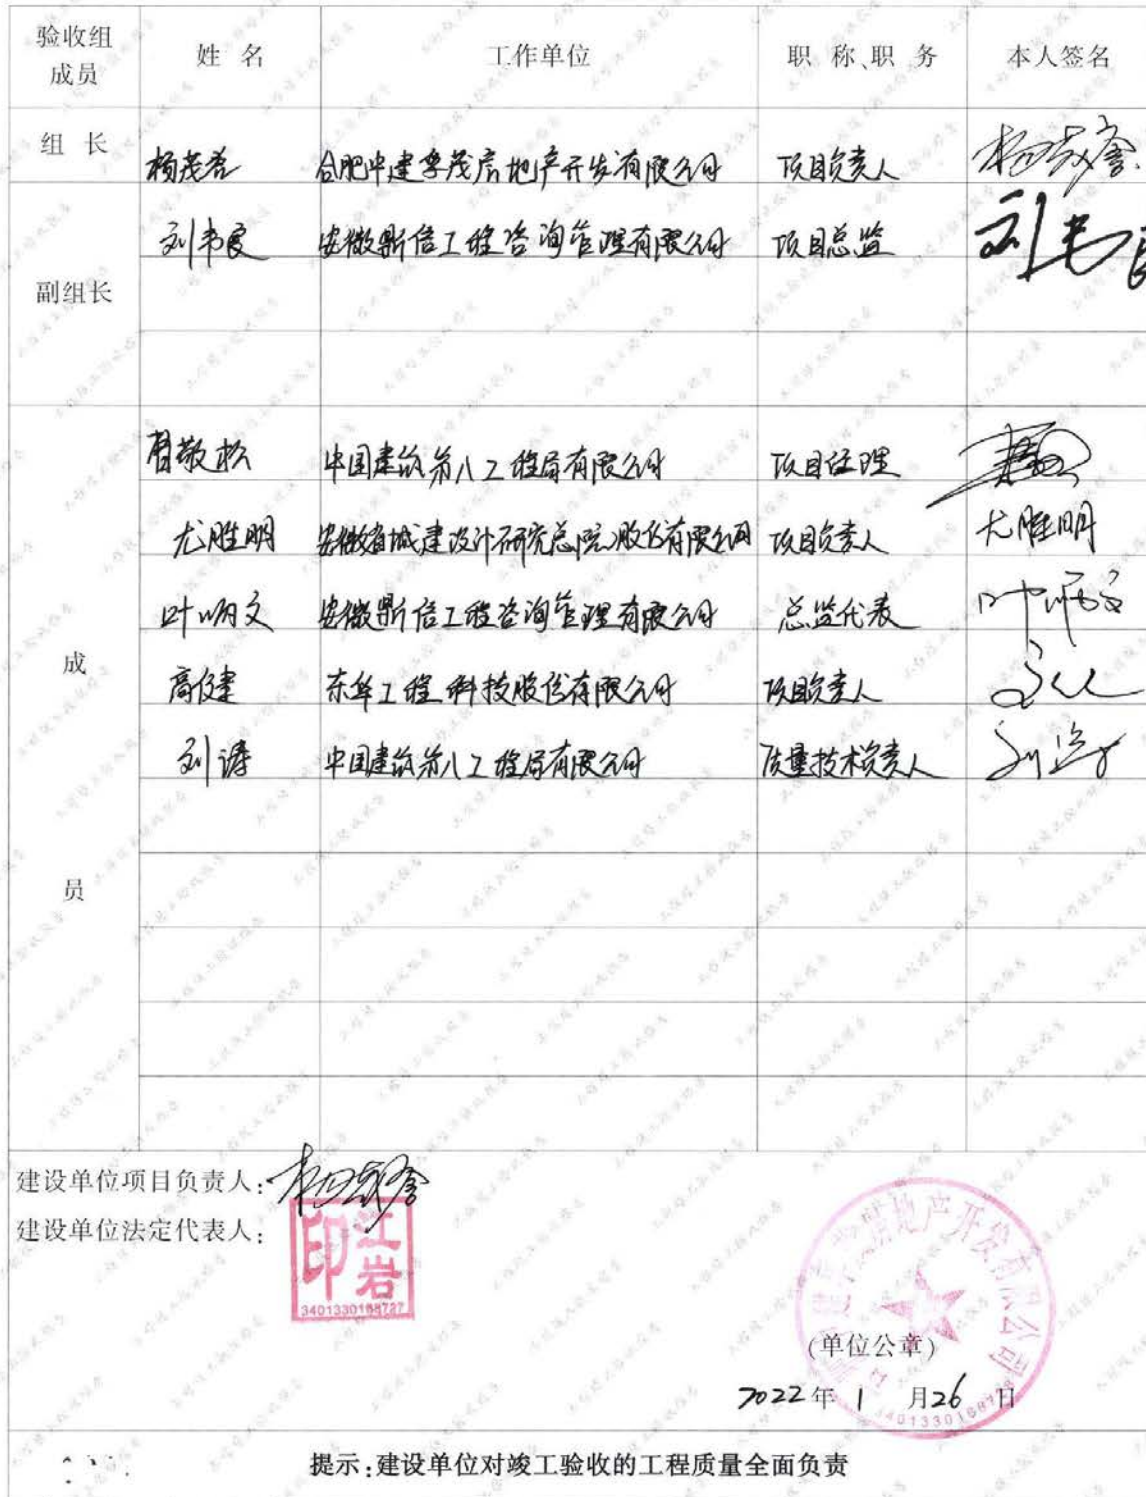 验收组
成员
姓 名
工作单位
职 称、职 务
本人签名
组 长
杨茂誉
合肥中建孚茂房地产开发有限公司
项目负责人
副组长
刘韦良
安徽鼎信工程咨询管理有限公司
项目总监
刘韦良
成
员
敬松
中国建筑第八工程局有限公司
项目经理
尤胜明
安徽省城建设计研究总院股份有限公司
项目负责人
尤胜明
叶炳文
安徽鼎信工程咨询管理有限公司
总监代表
高俊建
东华工程科技股份有限公司
项目负责人
刘涛
中国建筑第八工程局有限公司
质量技术负责人
刘涛
建设单位项目负责人:
建设单位法定代表人:
江岩
印
3401330168727
房地产开发有限公司
(单位公章)
2022年 1 月26 日
提示:建设单位对竣工验收的工程质量全面负责